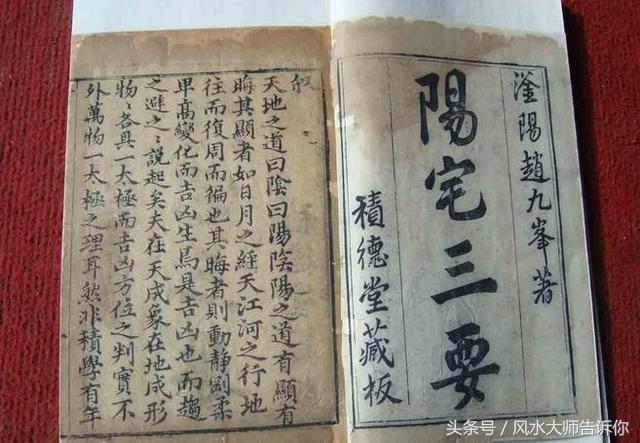 滏陽趙九峯著
陽宅三要
積德堂藏板
叙
天地之道曰陰曰陽陰陽之道有顯有
晦其顯者如日月之經天江河之行地
往而復周而徧也其晦者則動静剛柔
卑髙變化而吉凶生焉是吉凶也而趨
之避之〻説起矣夫在天成象在地成形
物〻各具一太極而吉凶方位之判實不
外萬物一太極之理耳然非積學有年
头条号／风水大师告诉你